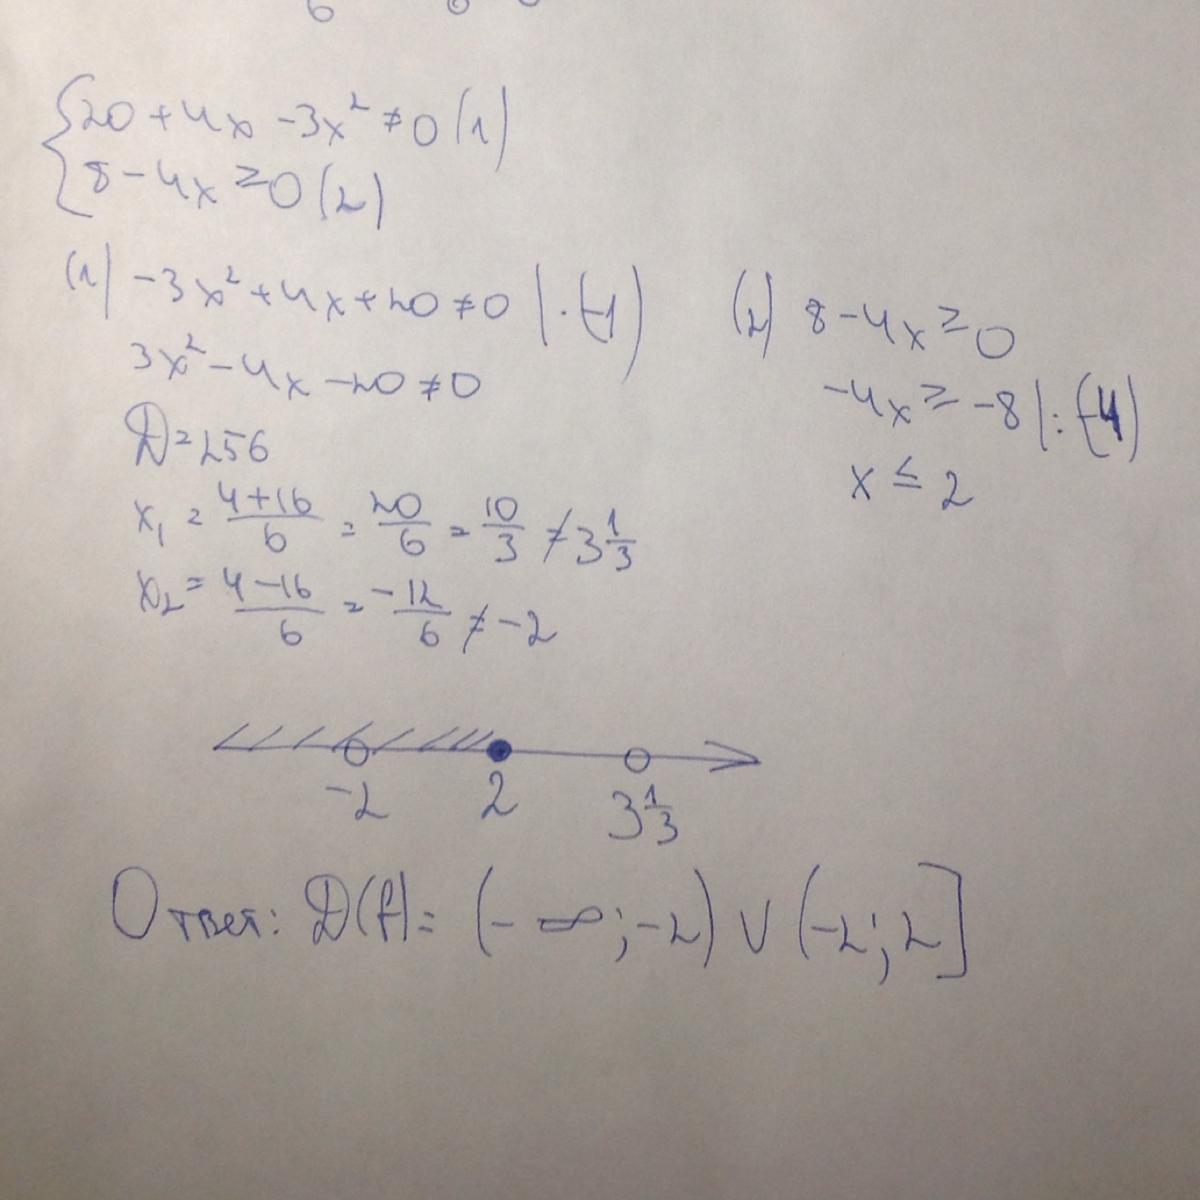 {20 + 4x - 3x² ≠ 0 (1)
{8 - 4x ≥ 0 (2)
(1) -3x² + 4x + 20 ≠ 0 | · (-1)
3x² - 4x - 20 ≠ 0
D = 256
x₁ = (4+16)/6 = 20/6 = 10/3 ≠ 3 1/3
x₂ = (4-16)/6 = -12/6 ≠ -2
(2) 8 - 4x ≥ 0
-4x ≥ -8 | : (-4)
x ≤ 2
-2 2 3 1/3
Ответ: D(f) = (-∞; -2) ∪ (-2; 2]